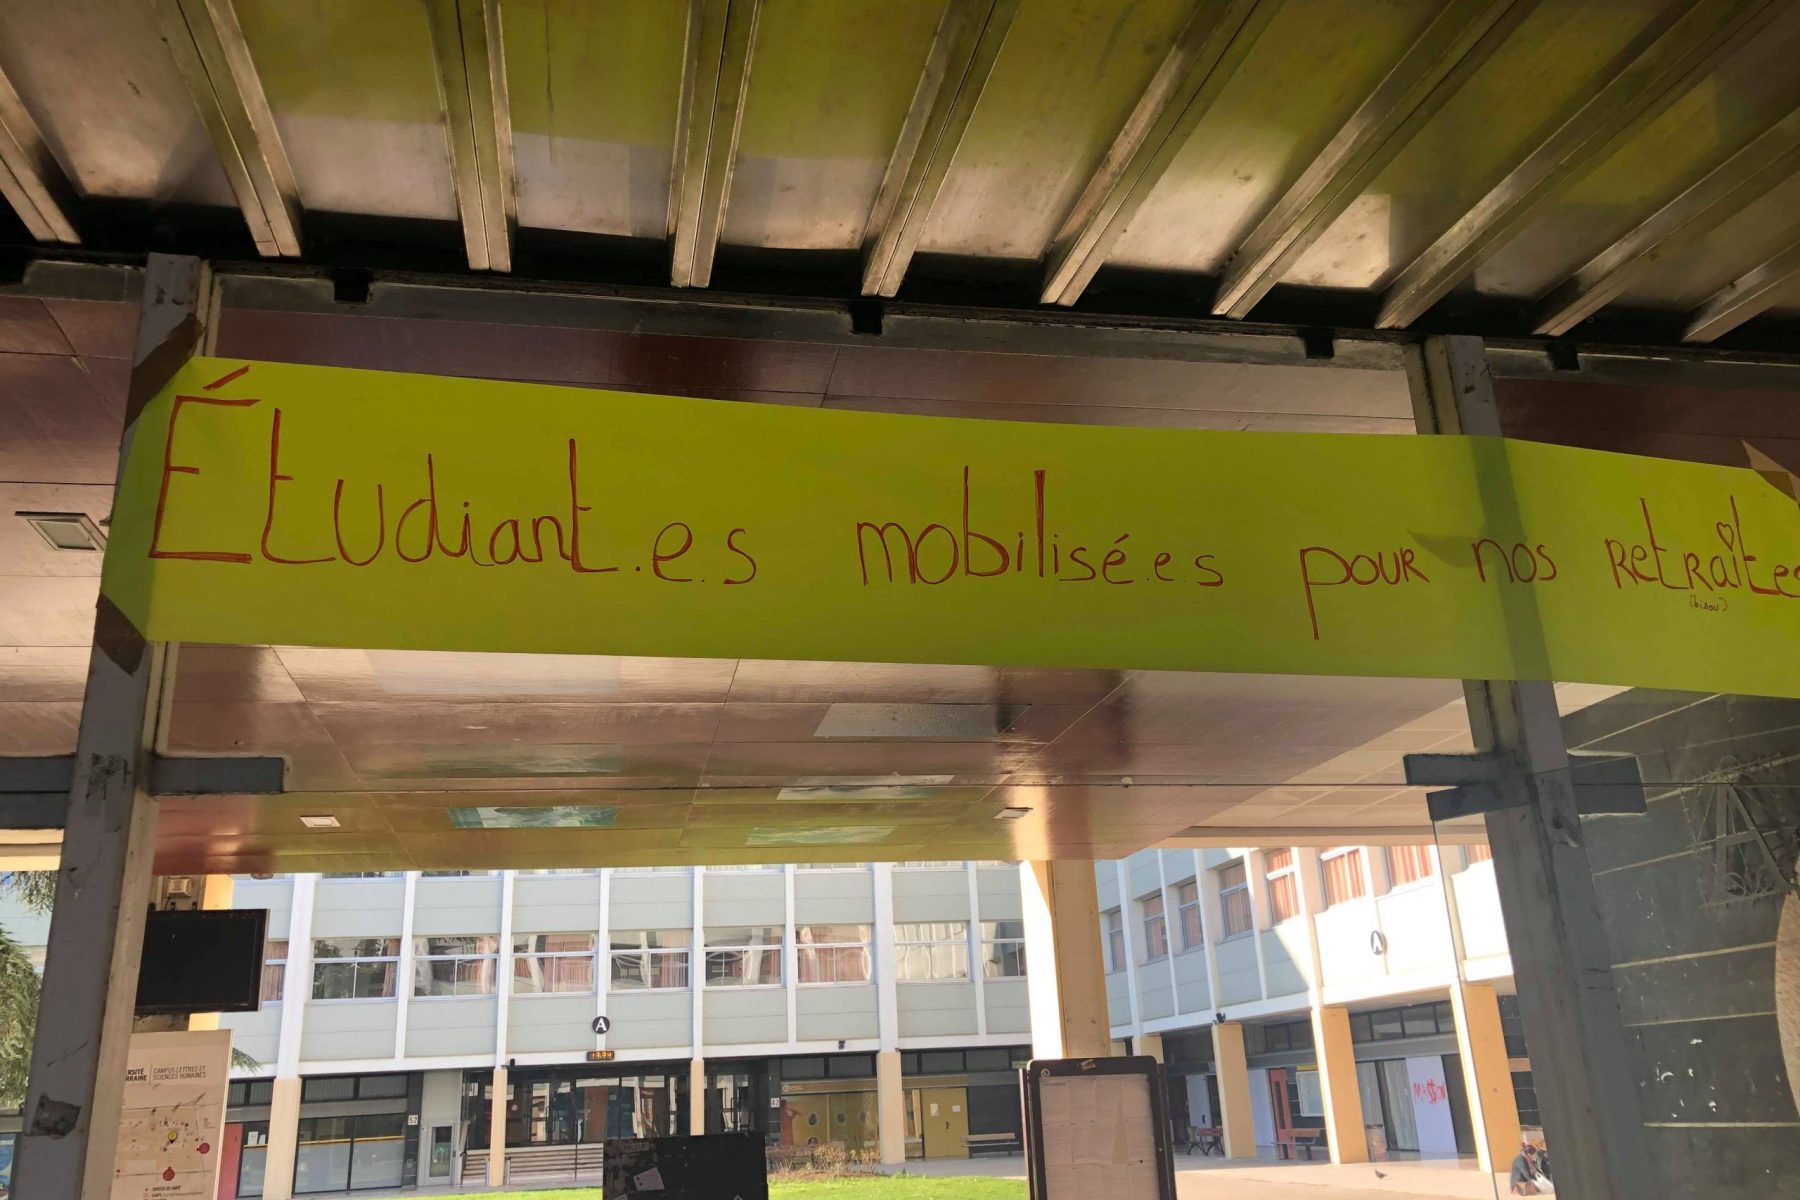 Étudiant.e.s mobilisé.e.s pour nos retraites
(bisou)
A
A
13:34
CAMPUS LETTRES ET
SCIENCES HUMAINES
52
42